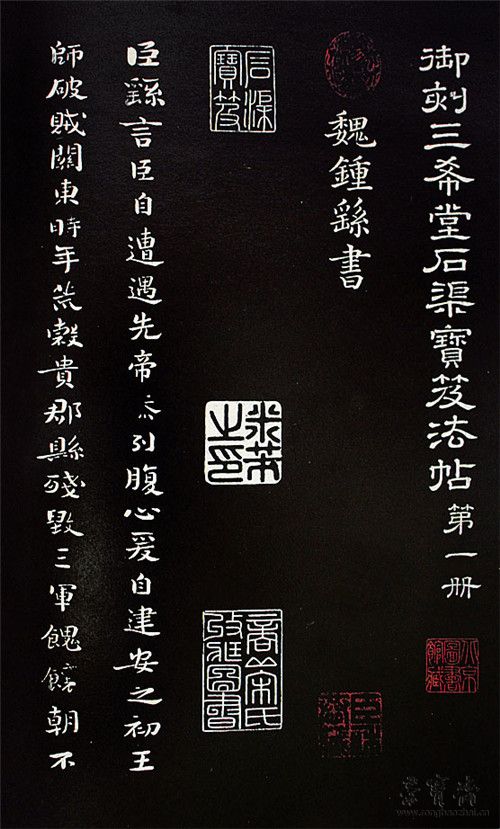 御刻三希堂石渠寶笈法帖 第一册
魏鍾繇書
石渠寶笈
米芾之印
臣繇言臣自遭遇先帝忝列腹心爰自建安之初王
師破賊關東時年荒穀貴郡縣殘毀三軍餽饟朝不
榮寶齋
www.rongbaozhai.cn